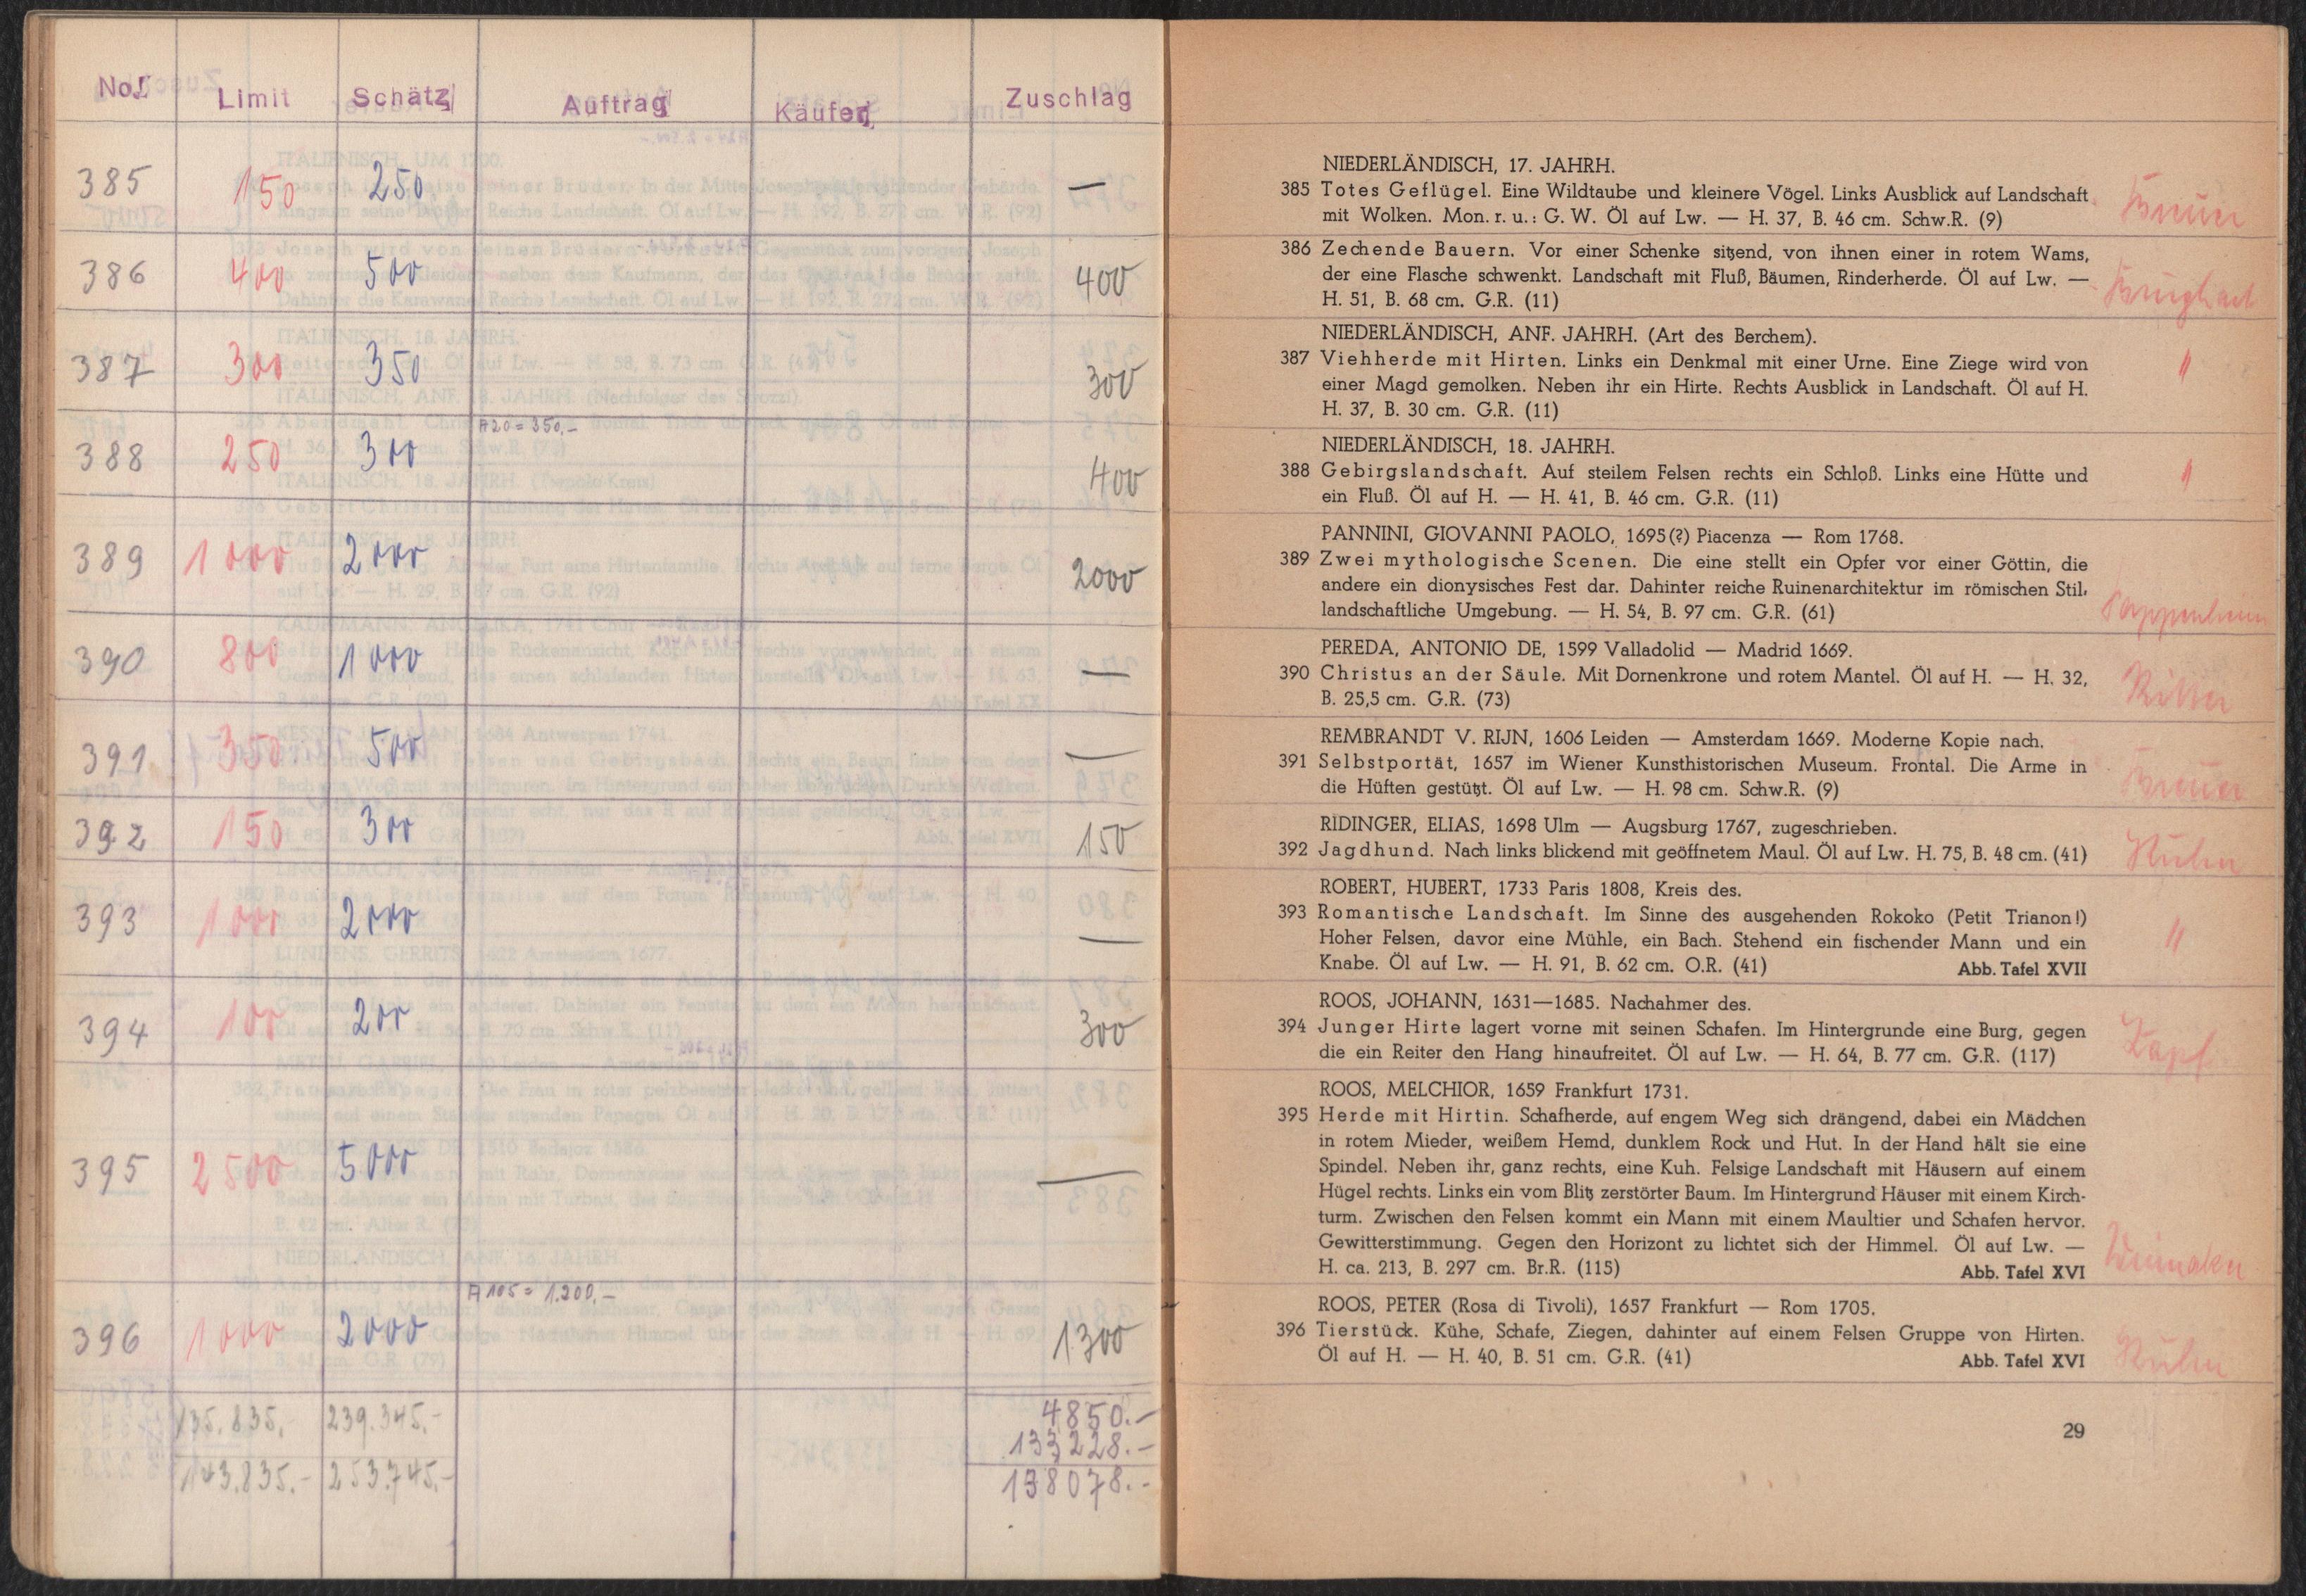 No. Limit Schätz Auftrag Käufer Zuschlag
385 150 250 —
386 400 500 400
387 300 350 300
A20 = 350,-
388 250 300 400
389 1000 2000 2000
390 800 1000 —
391 350 500 —
392 150 300 150
393 1000 2000 —
394 100 200 300
395 2500 5000 —
A105 = 1.200,-
396 1000 2000 1300
135.835,- 239.345.- 4850.-
133228.-
143.835.- 253.745.- 138078.-
NIEDERLÄNDISCH, 17. JAHRH.
385 Totes Geflügel. Eine Wildtaube und kleinere Vögel. Links Ausblick auf Landschaft
mit Wolken. Mon. r. u.: G. W. Öl auf Lw. — H. 37, B. 46 cm. Schw.R. (9)
386 Zechende Bauern. Vor einer Schenke sitzend, von ihnen einer in rotem Wams,
der eine Flasche schwenkt. Landschaft mit Fluß, Bäumen, Rinderherde. Öl auf Lw. —
H. 51, B. 68 cm. G.R. (11)
NIEDERLÄNDISCH, ANF. JAHRH. (Art des Berchem).
387 Viehherde mit Hirten. Links ein Denkmal mit einer Urne. Eine Ziege wird von "
einer Magd gemolken. Neben ihr ein Hirte. Rechts Ausblick in Landschaft. Öl auf H.
H. 37, B. 30 cm. G.R. (11)
NIEDERLÄNDISCH, 18. JAHRH.
388 Gebirgslandschaft. Auf steilem Felsen rechts ein Schloß. Links eine Hütte und "
ein Fluß. Öl auf H. — H. 41, B. 46 cm. G.R. (11)
PANNINI, GIOVANNI PAOLO, 1695(?) Piacenza — Rom 1768.
389 Zwei mythologische Scenen. Die eine stellt ein Opfer vor einer Göttin, die
andere ein dionysisches Fest dar. Dahinter reiche Ruinenarchitektur im römischen Stil,
landschaftliche Umgebung. — H. 54, B. 97 cm. G.R. (61) Pappenheim
PEREDA, ANTONIO DE, 1599 Valladolid — Madrid 1669.
390 Christus an der Säule. Mit Dornenkrone und rotem Mantel. Öl auf H. — H. 32,
B. 25,5 cm. G.R. (73)
REMBRANDT V. RIJN, 1606 Leiden — Amsterdam 1669. Moderne Kopie nach.
391 Selbstportät, 1657 im Wiener Kunsthistorischen Museum. Frontal. Die Arme in
die Hüften gestützt. Öl auf Lw. — H. 98 cm. Schw.R. (9)
RIDINGER, ELIAS, 1698 Ulm — Augsburg 1767, zugeschrieben.
392 Jagdhund. Nach links blickend mit geöffnetem Maul. Öl auf Lw. H. 75, B. 48 cm. (41)
ROBERT, HUBERT, 1733 Paris 1808, Kreis des.
393 Romantische Landschaft. Im Sinne des ausgehenden Rokoko (Petit Trianon!)
Hoher Felsen, davor eine Mühle, ein Bach. Stehend ein fischender Mann und ein "
Knabe. Öl auf Lw. — H. 91, B. 62 cm. O.R. (41) Abb. Tafel XVII
ROOS, JOHANN, 1631—1685. Nachahmer des.
394 Junger Hirte lagert vorne mit seinen Schafen. Im Hintergrunde eine Burg, gegen
die ein Reiter den Hang hinaufreitet. Öl auf Lw. — H. 64, B. 77 cm. G.R. (117)
ROOS, MELCHIOR, 1659 Frankfurt 1731.
395 Herde mit Hirtin. Schafherde, auf engem Weg sich drängend, dabei ein Mädchen
in rotem Mieder, weißem Hemd, dunklem Rock und Hut. In der Hand hält sie eine
Spindel. Neben ihr, ganz rechts, eine Kuh. Felsige Landschaft mit Häusern auf einem
Hügel rechts. Links ein vom Blitz zerstörter Baum. Im Hintergrund Häuser mit einem Kirch-
turm. Zwischen den Felsen kommt ein Mann mit einem Maultier und Schafen hervor.
Gewitterstimmung. Gegen den Horizont zu lichtet sich der Himmel. Öl auf Lw. —
H. ca. 213, B. 297 cm. Br.R. (115) Abb. Tafel XVI
ROOS, PETER (Rosa di Tivoli), 1657 Frankfurt — Rom 1705.
396 Tierstück. Kühe, Schafe, Ziegen, dahinter auf einem Felsen Gruppe von Hirten.
Öl auf H. — H. 40, B. 51 cm. G.R. (41) Abb. Tafel XVI
29